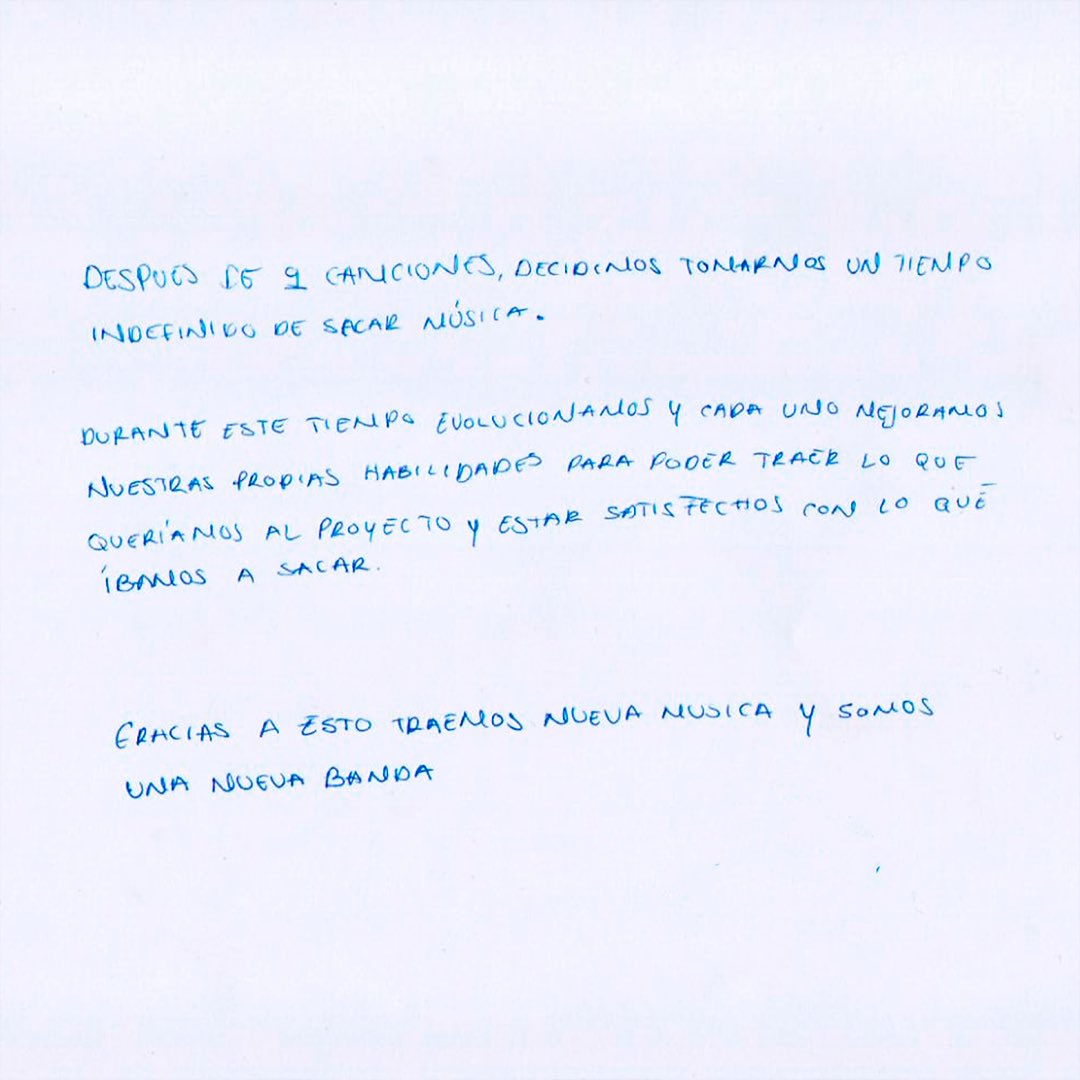 DESPUES DE 9 CANCIONES, DECIDIMOS TOMARNOS UN TIEMPO
INDEFINIDO DE SACAR MÚSICA.
DURANTE ESTE TIEMPO EVOLUCIONAMOS Y CADA UNO MEJORAMOS
NUESTRAS PROPIAS HABILIDADES PARA PODER TRAER LO QUE
QUERÍAMOS AL PROYECTO Y ESTAR SATISFECHOS CON LO QUÉ
ÍBAMOS A SACAR.
GRACIAS A ESTO TRAEMOS NUEVA MUSICA Y SOMOS
UNA NUEVA BANDA